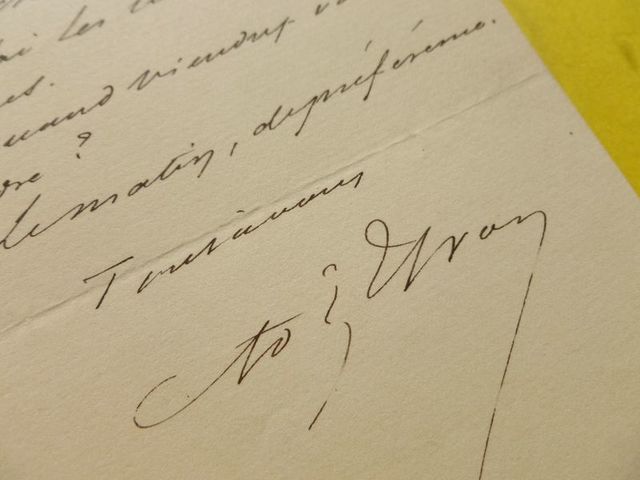 les
es.
quand viendront v
re ?
le matin, de préférence.
Tout à vous